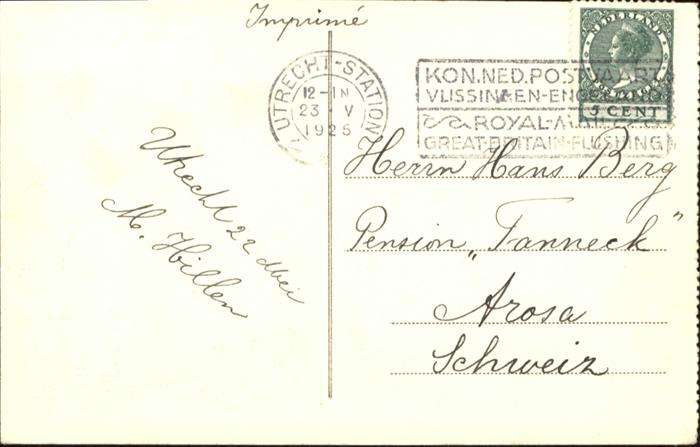 Imprimé
UTRECHT-STATION
12-1N
23 V
1925
KON. NED. POSTVAART
VLISSINGEN-ENGELAND
ROYAL-MAIL
GREAT-BRITAIN-FLUSHING
NEDERLAND
5 CENT
Herrn Hans Berg
Pension „Tanneck"
Arosa
Schweiz
Utrecht 22 Mei
M. Hillen